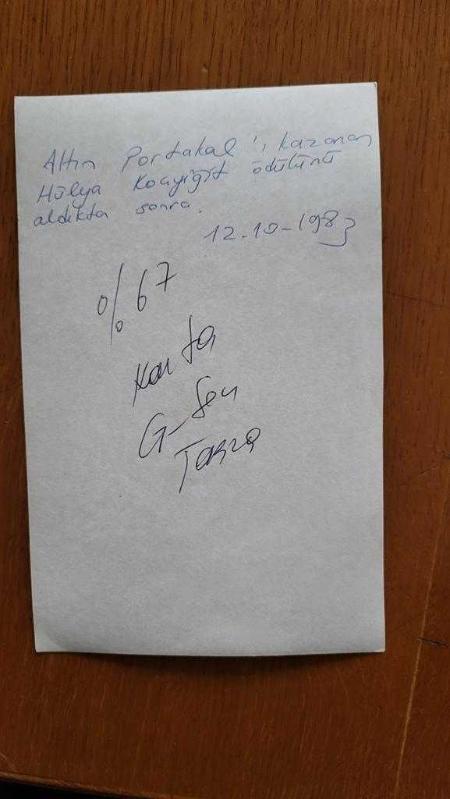 Altın Portakal'ı kazanan
Hülya Koçyiğit ödülünü
aldıkta sonra.
12.10-1983
%67
G-Sen